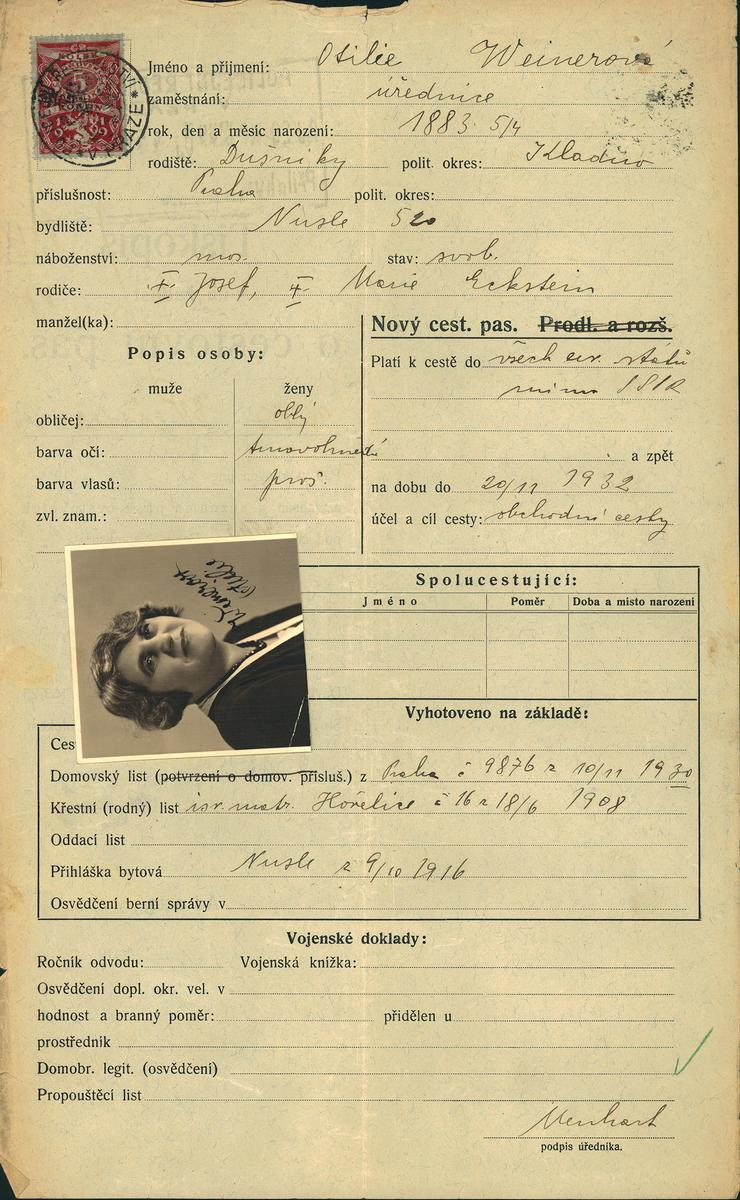 Jméno a příjmení: Otilie Weinerová
zaměstnání: úřednice
rok, den a měsíc narození: 1883. 5/4
rodiště: Dušníky polit. okres: Kladno
příslušnost: Praha polit. okres:
bydliště: Nusle 520
náboženství: mos. stav: svob.
rodiče: Josef, Marie Eckstein
manžel(ka):
Nový cest. pas. Prodl. a rozš.
Popis osoby:
Platí k cestě do všech evr. států
mimo SSSR
muže ženy
obličej: oblý
barva očí: tmavohnědé
a zpět
barva vlasů: proš.
na dobu do 20/11 1932
zvl. znam.:
účel a cíl cesty: obchodní cesty
Weinerová
Otilie
Spolucestující:
Jméno Poměr Doba a místo narození
Vyhotoveno na základě:
Ces
Domovský list (potvrzení o domov. přísluš.) z Praha č 9876 z 10/11 1930
Křestní (rodný) list isr. matr. Hořelice č 16 z 18/6 1908
Oddací list
Přihláška bytová Nusle z 9/10 1916
Osvědčení berní správy v
Vojenské doklady:
Ročník odvodu: Vojenská knížka:
Osvědčení dopl. okr. vel. v
hodnost a branný poměr: přidělen u
prostředník
Domobr. legit. (osvědčení)
Propouštěcí list
Menhart
podpis úředníka.